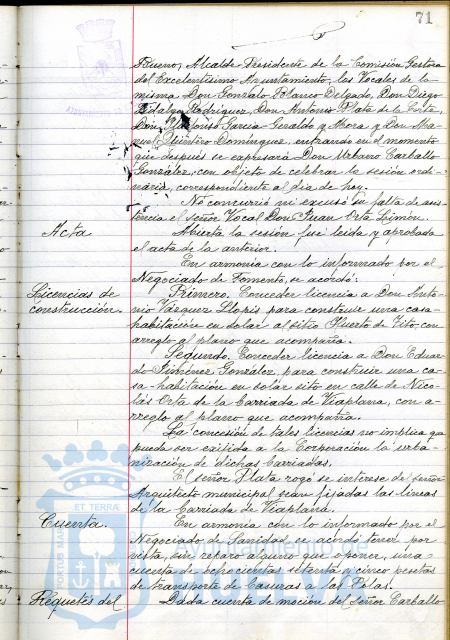 71
Bueno, Alcalde Presidente de la Comisión Gestora
del Excelentísimo Ayuntamiento, los Vocales de la
misma Don Gonzalo Blanco Delgado, Don Diego
Hidalgo Rodríguez, Don Antonio Plata de la Corte,
Don García Geraldo y Mora y Don Ma-
nuel Quintero Domínguez, entrando en el momento
que después se expresará Don Urbano Carballo
González, con objeto de celebrar la sesión ordi-
naria, correspondiente al día de hoy.
No concurrió ni excusó su falta de asis-
tencia el señor Vocal Don Juan Orta Limón.
Acta
Abierta la sesión fué leída y aprobada
el acta de la anterior.
En armonía con lo informado por el
Negociado de Fomento, se acordó:
Licencias de
construcción.
Primero. Conceder licencia a Don Anto-
nio Vázquez Llopis para construir una casa-
habitación en solar al sitio Huerto de Tito, con
arreglo al plano que acompaña.
Segundo. Conceder licencia a Don Eduar-
do Jiménez González, para construir una ca-
sa-habitación en solar sito en calle de Nico-
lás Orta de la Barriada de Viaplana, con a-
rreglo al plano que acompaña.
La concesión de tales licencias no implica que
pueda ser exijida a la Corporación la urba-
nización de dichas barriadas.
El señor Plata rogó se interese del señor
Arquitecto municipal sean fijadas las líneas
de la Barriada de Viaplana.
Cuenta.
En armonía con lo informado por el
Negociado de Sanidad, se acordó tener por
vista, sin reparo alguno que oponer, una
cuenta de ochocientas setenta y cinco pesetas
de transporte de basuras a las Polas.
Requetés del
Dada cuenta de moción del señor Carballo
PORTUS MARIS ET TERRÆ